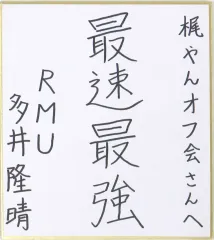 梶やんオフ会さんへ
最速最強
RMU
多井隆晴